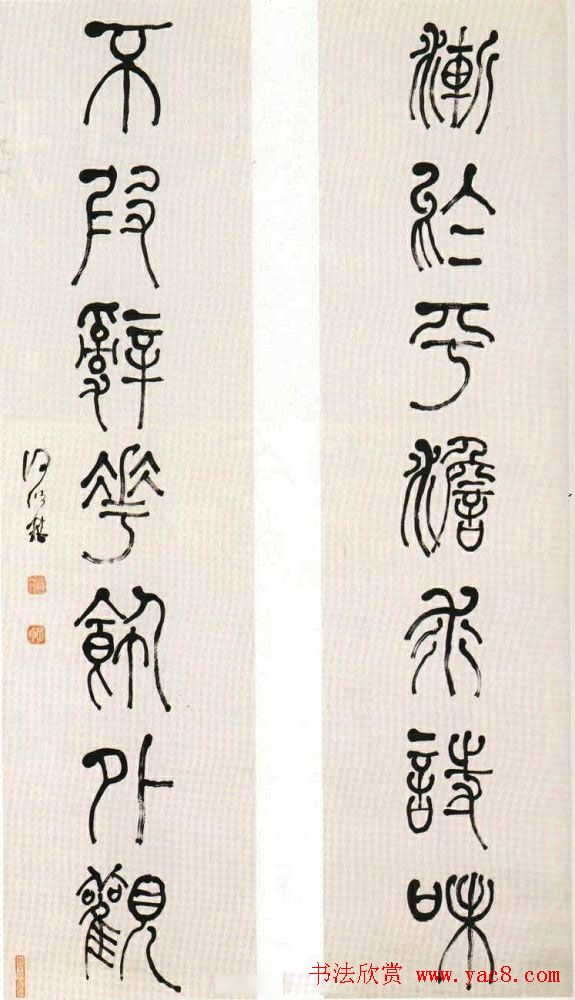 漸於平澹求詩味
不叚辭華飾外觀
何紹基
书法欣赏 www.yac8.com